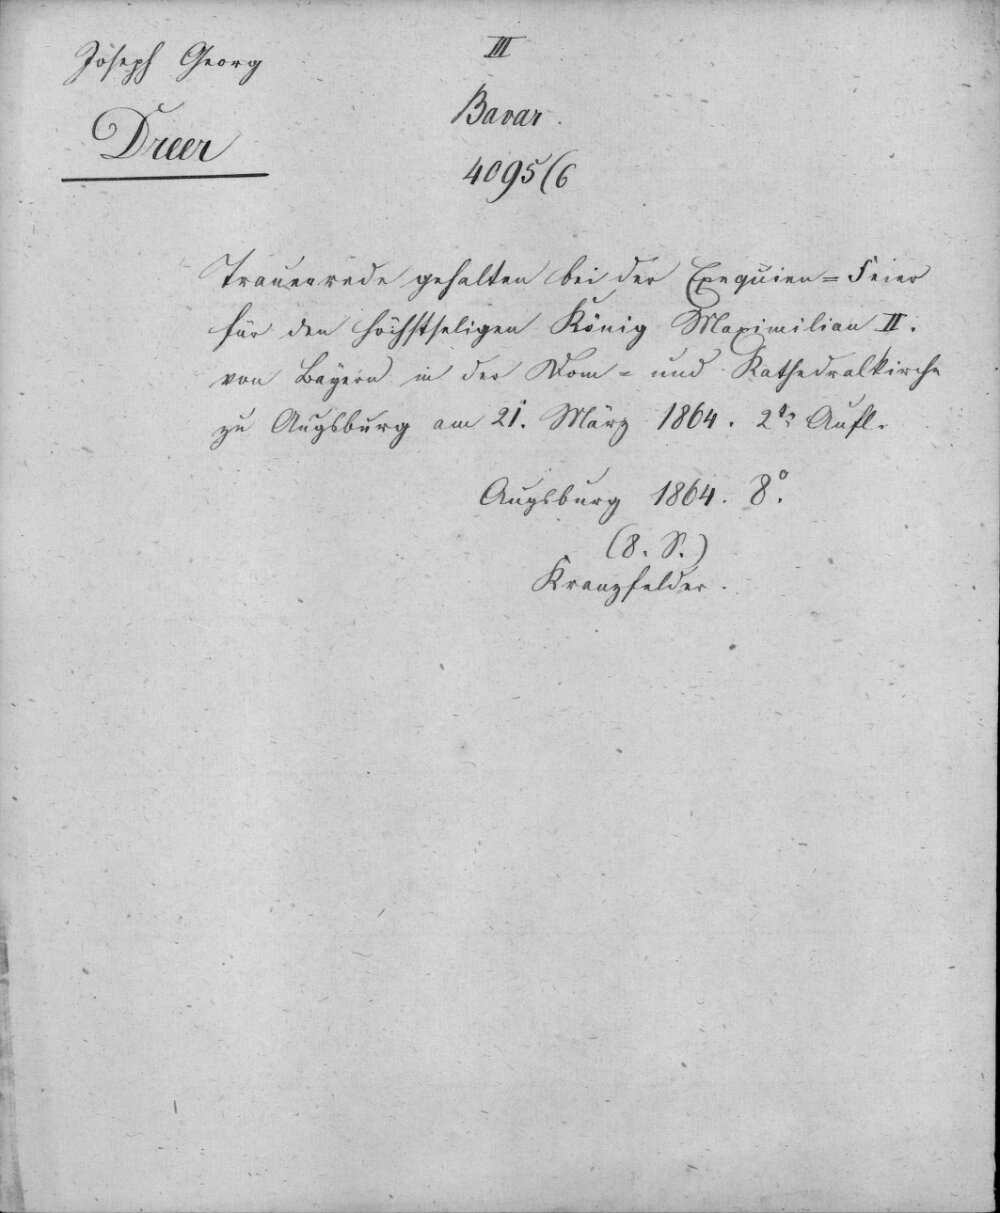 III
Joseph Georg
Bavar.
Dreer
4095(6
Trauerrede gehalten bei der Exequien=Feier
für den höchstseligen König Maximilian II.
von Bayern in der Dom= und Kathedralkirche
zu Augsburg am 21. März 1864. 2te Aufl.
Augsburg 1864. 8°.
(8. S.)
Kranzfelder.